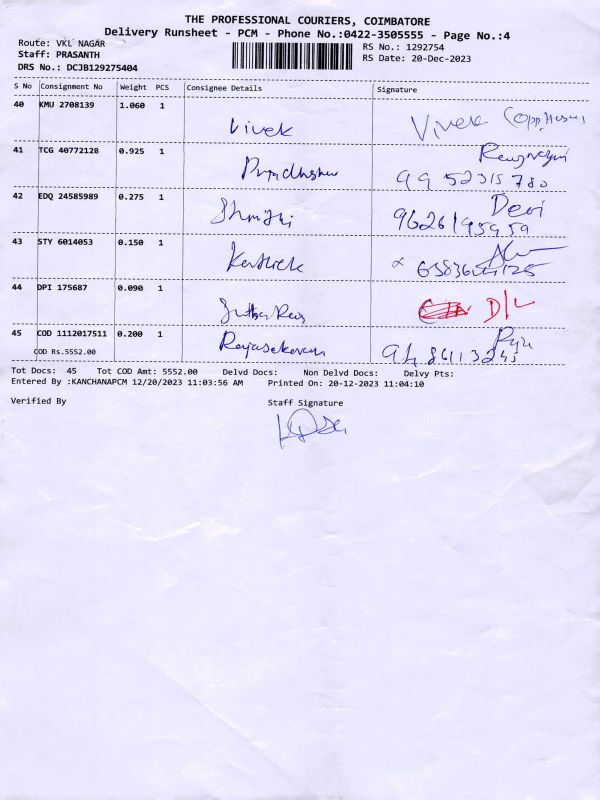 THE PROFESSIONAL COURIERS, COIMBATORE
Delivery Runsheet - PCM - Phone No.:0422-3505555 - Page No.:4
Route: VKL NAGAR
Staff: PRASANTH
DRS No.: DCJB129275404
RS No.: 1292754
RS Date: 20-Dec-2023
S No Consignment No Weight PCS Consignee Details Signature
40 KMU 2708139 1.060 1
Vivek Vivek
41 TCG 40772128 0.925 1
9952315780
42 EDQ 24585989 0.275 1
Devi
9626195959
43 STY 6014053 0.150 1
Karthick
44 DPI 175687 0.090 1
D/L
45 COD 1112017511 0.200 1
COD Rs.5552.00
Rajasekaran
Tot Docs: 45 Tot COD Amt: 5552.00 Delvd Docs: Non Delvd Docs: Delvy Pts:
Entered By :KANCHANAPCM 12/20/2023 11:03:56 AM Printed On: 20-12-2023 11:04:10
Verified By Staff Signature